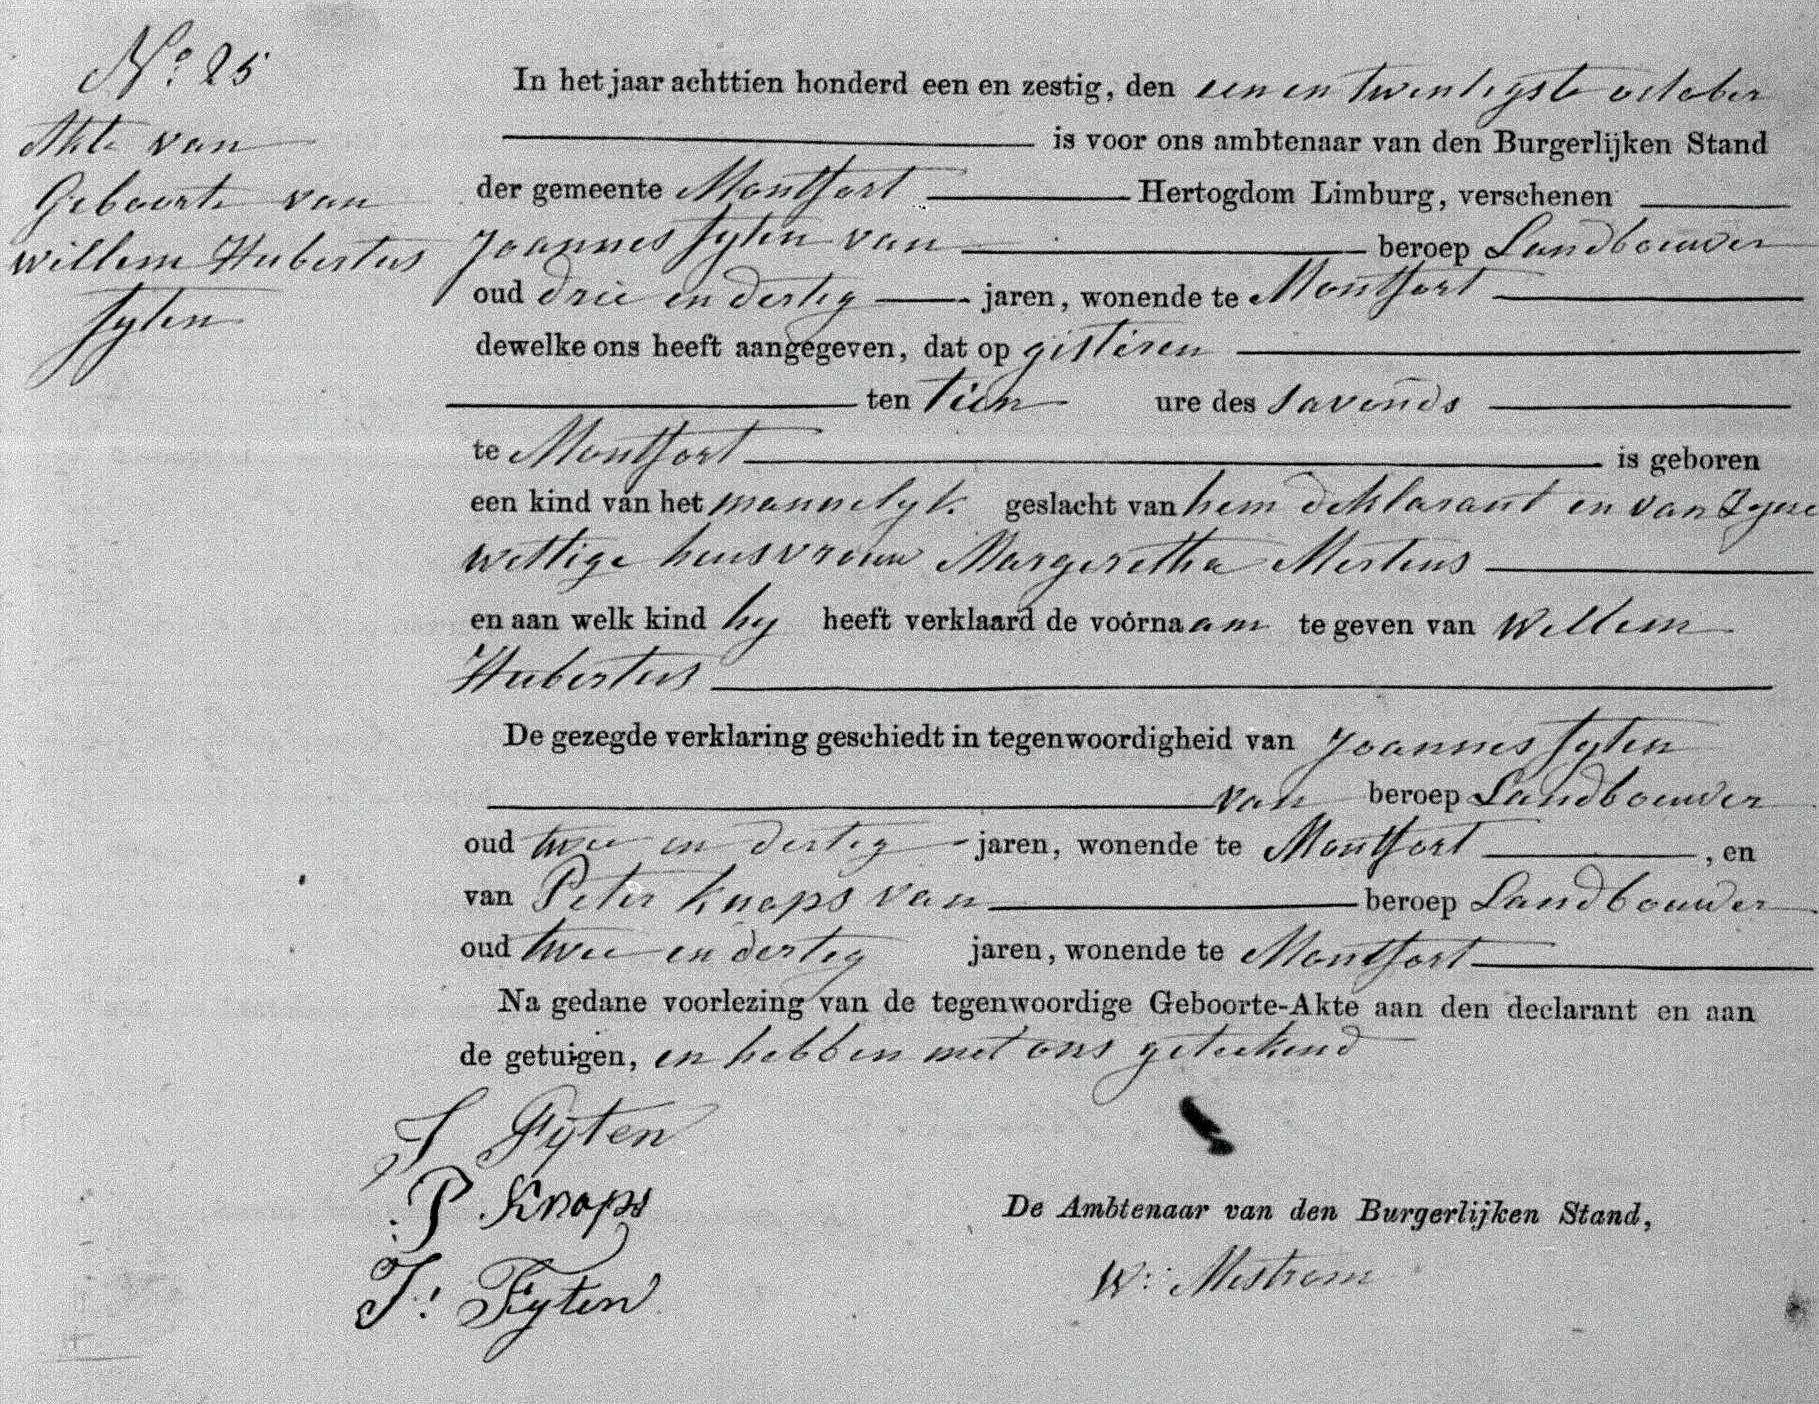 No. 25
Akte van
Geboorte van
willem Hubertus
Fyten
In het jaar achttien honderd een en zestig, den een en twentigste october
is voor ons ambtenaar van den Burgerlijken Stand
der gemeente Montfort Hertogdom Limburg, verschenen
Joannes Fyten van beroep Landbouwer
oud drie en dertig jaren, wonende te Montfort
dewelke ons heeft aangegeven, dat op gisteren
ten tien ure des savonds
te Montfort is geboren
een kind van het mannelyk geslacht van hem deklarant en van Zyne
wettige huisvrouw Margeretha Mertens
en aan welk kind hy heeft verklaard de voornaam te geven van Willem
Hubertus
De gezegde verklaring geschiedt in tegenwoordigheid van Joannes Fyten
van beroep Landbouwer
oud twee en dertig jaren, wonende te Montfort, en
van Peter Knops van beroep Landbouwer
oud twee en dertig jaren, wonende te Montfort
Na gedane voorlezing van de tegenwoordige Geboorte-Akte aan den declarant en aan
de getuigen, en hebben met ons geteekend
J Fÿten
P. Knops
J: Fyten
De Ambtenaar van den Burgerlijken Stand,
W: Mestrom